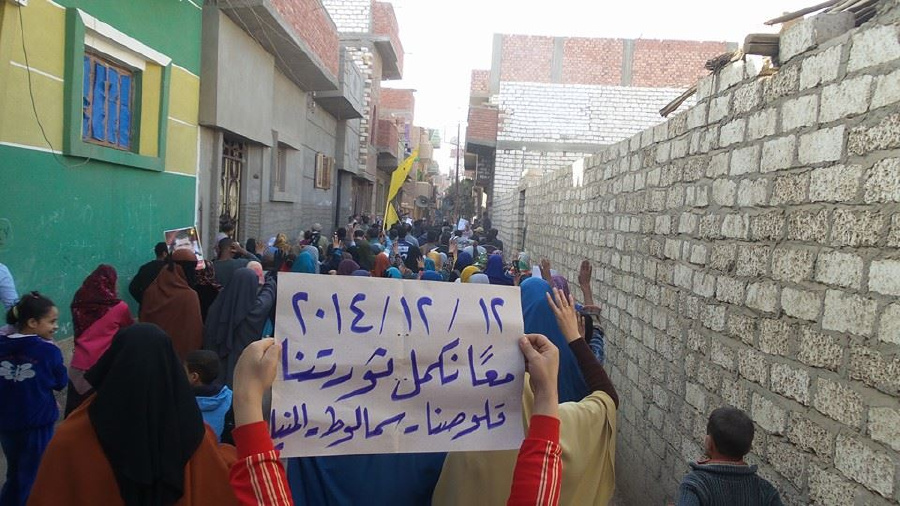 ١٢ / ١٢ / ٢٠١٤
معًا نكمل ثورتنا
قلوصنا - سمالوط - المنيا